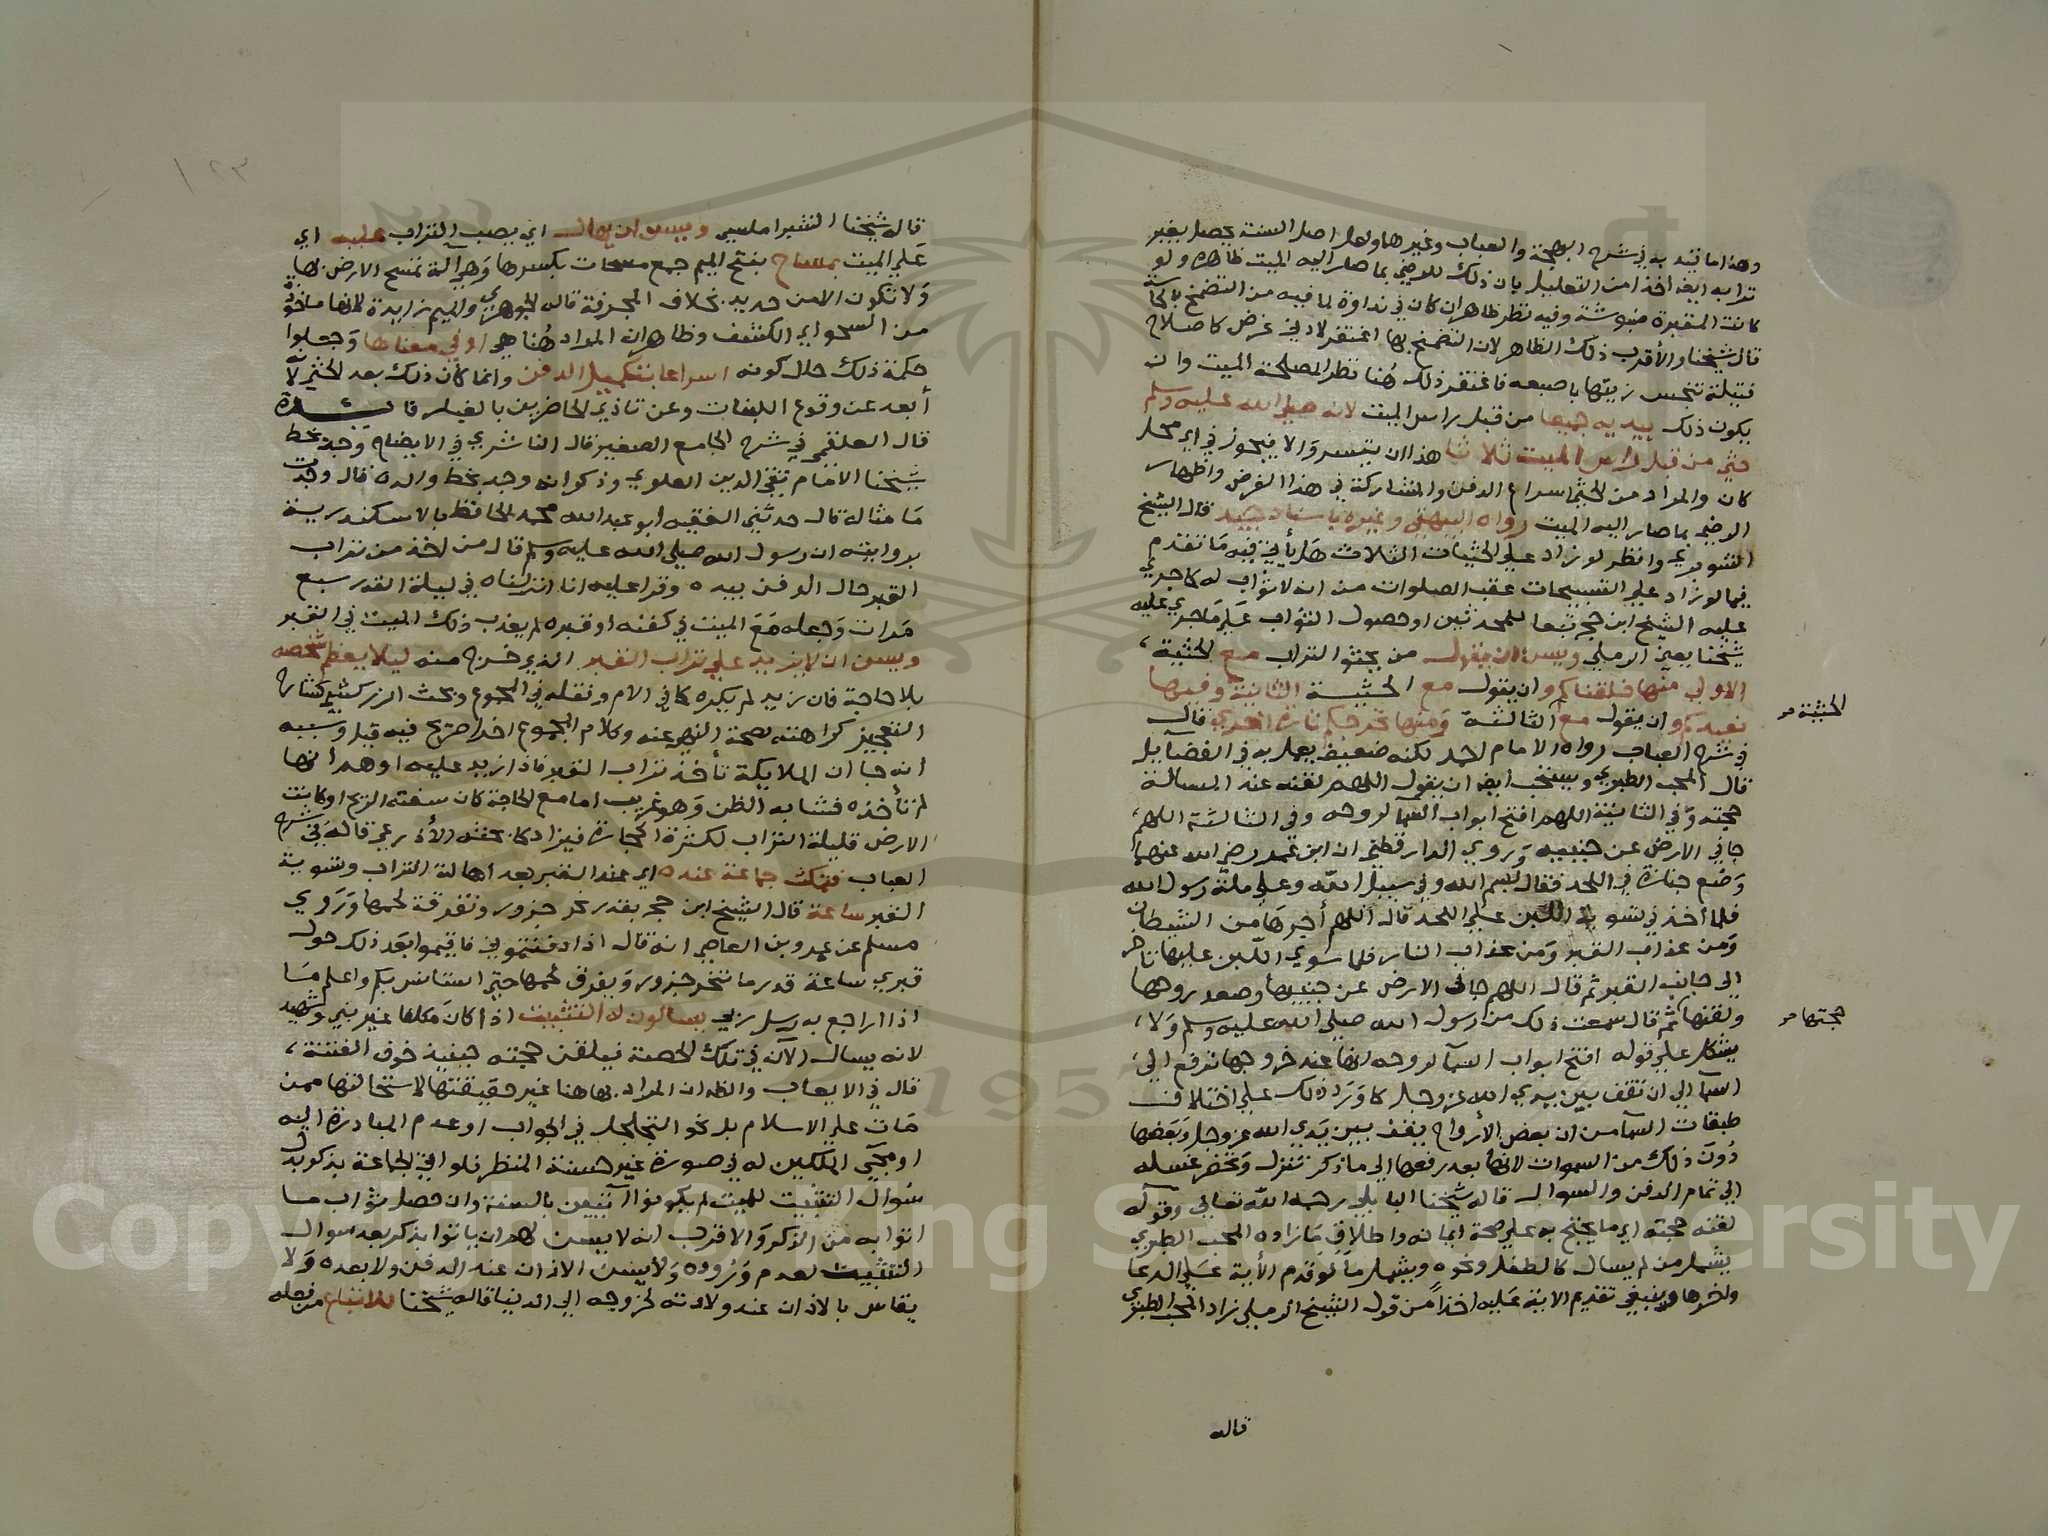 وهذا ما قيد به في شرح البهجة والعباب وغيرهما ولعل اصل السنة يحصل بغير
ترابه ايضا اخذا من التعليل بان ذلك للرضى بما صار اليه الميت ظاهره ولو
كانت المقبرة منبوشة وفيه نظر ظاهر ان كان في نداوة لما فيه من التضمخ بالنجاسة
قال شيخنا والأقرب ذلك الظاهر لان التضمخ بها اغتفر لادنى غرض كاصلاح
فتيلة تنجس زيتها باصبعه فاغتفر ذلك هُنا نظرا لمصلحة الميت وان
يكون ذلك بيديه جميعا من قبل راس الميت لانه صلى الله عليه وسلم
حثى من قبل راس الميت ثلاثا هذا ان تيسر وَالا فيجوز في اي محل
كان والمراد من الحثي اسراع الدفن والمشاركة في هذا الفرض واظهار
الرضى بما صار اليه الميت رواه البيهقي وغيره باسناد جيد قال الشيخ
الشوبري وانظر لو زاد علي الحثيات الثلاث هَل يأتي فيه مَا تقدم
فيما لو زاد علي التسبيحات عقب الصلوات من انه لا ثواب له كما جري
عليه الشيخ ابن حجر تبعا للمحدثين او حصول الثواب عَلي مَا جري عليه
شيخنا يعني الرملي ويسن ان يقول من يحثو التراب مع الحثية
الاولي منها خلقناكم وان يقول مع الحثية الثانية وفيها
نعيدكم وان يقول مع الثالثة وَمنها نخرجكم تارة اخري قال
في شرح العباب رواه الامام احمد لكنه ضعيف يعمل به في الفضايل
قال المحب الطبري ويستحب ايضا ان يقول اللهم لقنه عند المسالة
حجته وَفي الثانية اللهم افتح ابواب السّما لروحه وفي الثالثة اللهم
جافي الارض عن جنبيه وَروي الدارقطني ان ابن عمر رضي الله عنهما
وَضع جنازة في اللحد فقال بسم الله وفي سبيل الله وعلي ملة رسول الله
فلما اخذ في تسوية اللبن علي اللحد قال اللهم أجرهَا من الشيطان
وَمن عذاب القبر وَمن عذاب النار فلما سَوي اللّبن عليها تاخر
الي جانب القبر ثم قال اللهم جافي الارض عن جنبيها وصعد روحها
ولقنها ثم قال سمعت ذلك من رسول الله صلي الله عليه وسلم وَلا
يشكل علي قوله افتح ابواب السمآ لروحه انها عند خروجها ترفع الي
السمآ الي ان تقف بين يدي الله عز وجل كما وَرَد ذلك علي اختلاف
طبقات السمآ من ان بعض الأرواح يقف بين يَدي الله عز وجل وَبَعضها
دُونَ ذلك من السموات لانها بعد رفعها الي ما ذكر تنزل وَتحضر غَسله
الي تمام الدفن والسوال قاله شيخنا البابلي رحمه الله تعالي وقوله
لقنه حجته اي ما يحتج به علي صحة ايمانه واطلاق مَا زاده المحب الطبري
يشمل من لم يسال كالطفل ونحوه ويشمل مَا لو قدم الأية عَلي الدعا
ولخرها وينبغي تقديم الاية عَليه اخذاً من قول الشيخ الرملي زاد المحب الطبري
الحثية صح
حجتها صح
قاله
١٢٣
قاله شيخنا الشبراملسي ويسن ان يهال اي يصب التراب عليه اي
عَلي الميت بمساح بفتح الميم جمع مسحات بكسرها وَهي آلة تمسح الارض بها
وَلا تكون الا من حديد بخلاف المجرفة قاله الجوهري والميم زايدة لانها ماخوذة
من السحو اي الكشف وظاهر ان المراد هُنا هي او في معناها وَجعلوا
حكمة ذلك حال كونه اسراعا بتكميل الدفن وانما كان ذلك بعد الحثي لانه
أبعد عن وقوع اللبنات وعن تاذي الحاضرين بالغبار فايدة
قال العلقمي في شرح الجامع الصغير قال الناشري في الايضاح وجد بخط
شيخنا الامام تقي الدين العلوي وذكر انه وجد بخط والده قال وجدت
مَا مثاله قال حدثني الفقيه ابو عبد الله محمد الحافظ بالاسكندرية
بروايته ان رسول الله صلي الله عليه وسلم قال من اخذ من تراب
القبر حال الدفن بيده وقرا عليه انا انزلناه في ليلة القدر سبع
مَرات وَجعله مَعَ الميت في كفنه او قبره لم يعذب ذلك الميت في القبر
ويسن ان لا يزيد علي تراب القبر الذي خرج منه ليلا يعظم شخصه
بلا حاجة فان زيد لم يكره كما في الام ونقله في المجموع وبحث الزركشي كشارح
التعجيز كراهته لصحة النهي عنه وكلام المجموع اخرا صَرّح فيه قيل وَسببه
انه جا ان الملايكة تأخذ تراب القبر فاذا زيد عليه اوهم انها
لم تأخذه فتشابه الظن وَهو غريب اما مع الحاجة كان سفته الريح او كانت
الارض قليلة التراب لكثرة الحجارة فيزاد كما بحثه الأذرعي قاله في شرح
العباب فيمكث جماعة عنده اي عند القبر بعد اهالة التراب وتسوية
القبر ساعة قال الشيخ ابن حجر بقدر نحر جزور وتفرقة لحمها وَروي
مسلم عن عمرو بن العاصي انه قال اذا دفنتموني فاقيموا بَعد ذلك حول
قبري ساعة قدر ما تنحر جزور وَيفرق لحمها حتي استانس بكم واعلم مَا
اذا اراجع به رسل ربي يسالون له التثبيت اذا كان مَكلفا غير نبي وشهيد
لانه يسال الآن في تلك الحصة فيلقن حجته حينيذ خوف الفتنة
قال في الايعاب والظاهر ان المراد بها هنا غير حقيقتها لاستحالتها ممن
مَات علي الاسلام بل نحو التجلجل في الجواب او عدم المبادرة اليه
او مجيي الملكين له في صورة غير حسنة المنظر فلو اتي الجماعة بذكر بدل
سُوال التثبيت للميت لم يكونوا آتيين بالسنة وان حصل ثواب ما
اتوا به من الذكر وَالاقرب انه لا يسن لهم ان ياتوا بذكر بعد سوال
التثبيت لعدم وَرُوده وَلا يُسن الاذان عند الدفن ولا بعده وَلا
يقاس بالاذان عند ولادته لخروجه الي الدنيا قاله شيخنا للاتباع من فعله
Copyright © King Saud University
1957